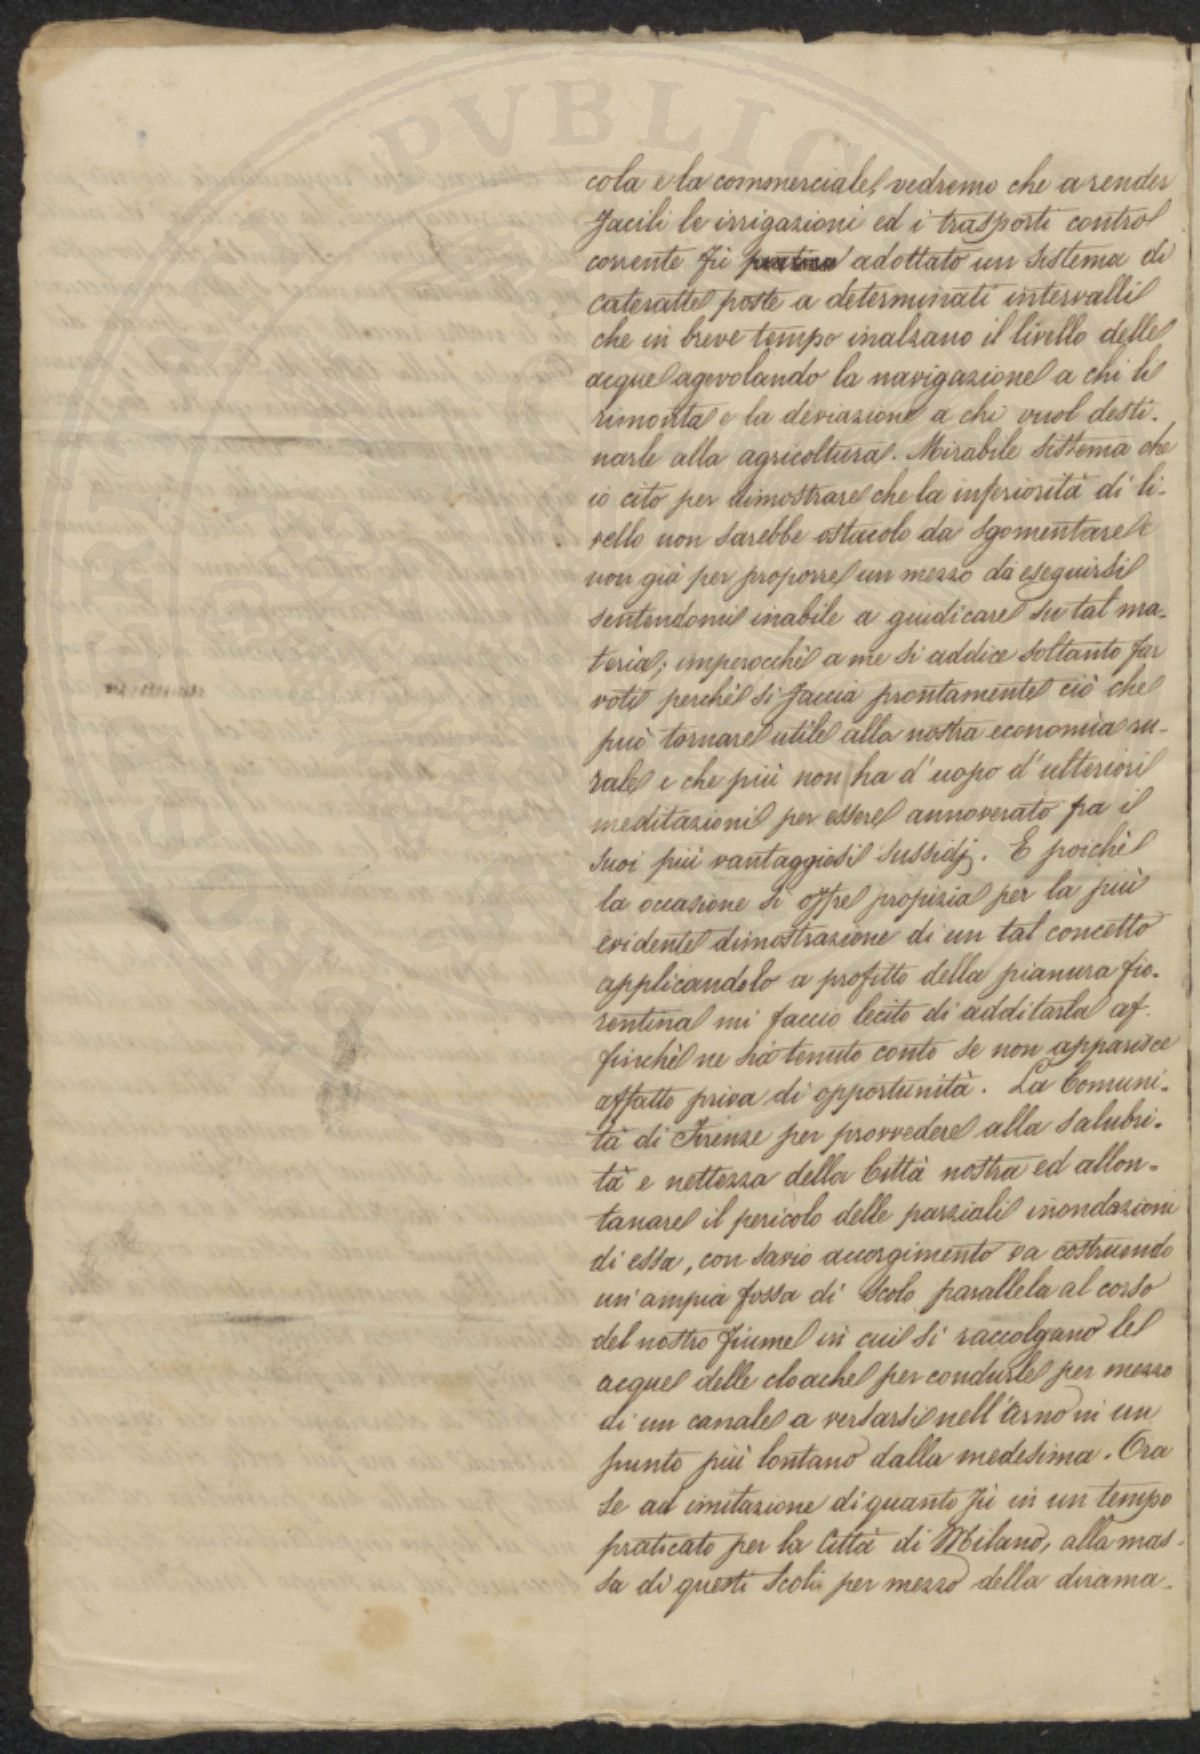 cola e la commerciale, vedremo che a render
facili le irrigazioni ed i trasporti contro
corrente fù adottato un sistema di
cateratte poste a determinati intervalli
che in breve tempo inalzano il livello delle
acque agevolando la navigazione a chi le
rimonta e la deviazione a chi vuol desti-
narle alla agricoltura. Mirabile sistema che
io cito per dimostrare che la inferiorità di li-
vello non sarebbe ostacolo da sgomentare e
non già per proporre un mezzo da eseguirsi
sentendomi inabile a guidicare su tal ma-
teria; imperocchè a me si addice soltanto far
voti perchè si faccia prontamente ciò che
può tornare utile alla nostra economia ru-
rale e che più non ha d'uopo d'ulteriori
meditazioni per essere annoverato fra i
suoi più vantaggiosi sussidj. E poichè
la occasione si offre propizia per la più
evidente dimostrazione di un tal concetto
applicandolo a profitto della pianura fio-
rentina mi faccio lecito di additarla af-
finchè ne sia tenuto conto se non apparisce
affatto priva di opportunità. La Comuni-
tà di Firenze per provvedere alla salubri-
tà e nettezza della Città nostra ed allon-
tanare il pericolo delle parziali inondazioni
di essa, con savio accorgimento va costruendo
un'ampia fossa di scolo parallela al corso
del nostro fiume in cui si raccolgano le
acque delle cloache per condurle per mezzo
di un canale a versarsi nell'Arno in un
punto più lontano dalla medesima. Ora
se ad imitazione di quanto fù in un tempo
praticato per la Città di Milano, alla mas-
sa di questi scoli per mezzo della dirama-
PVBLIC